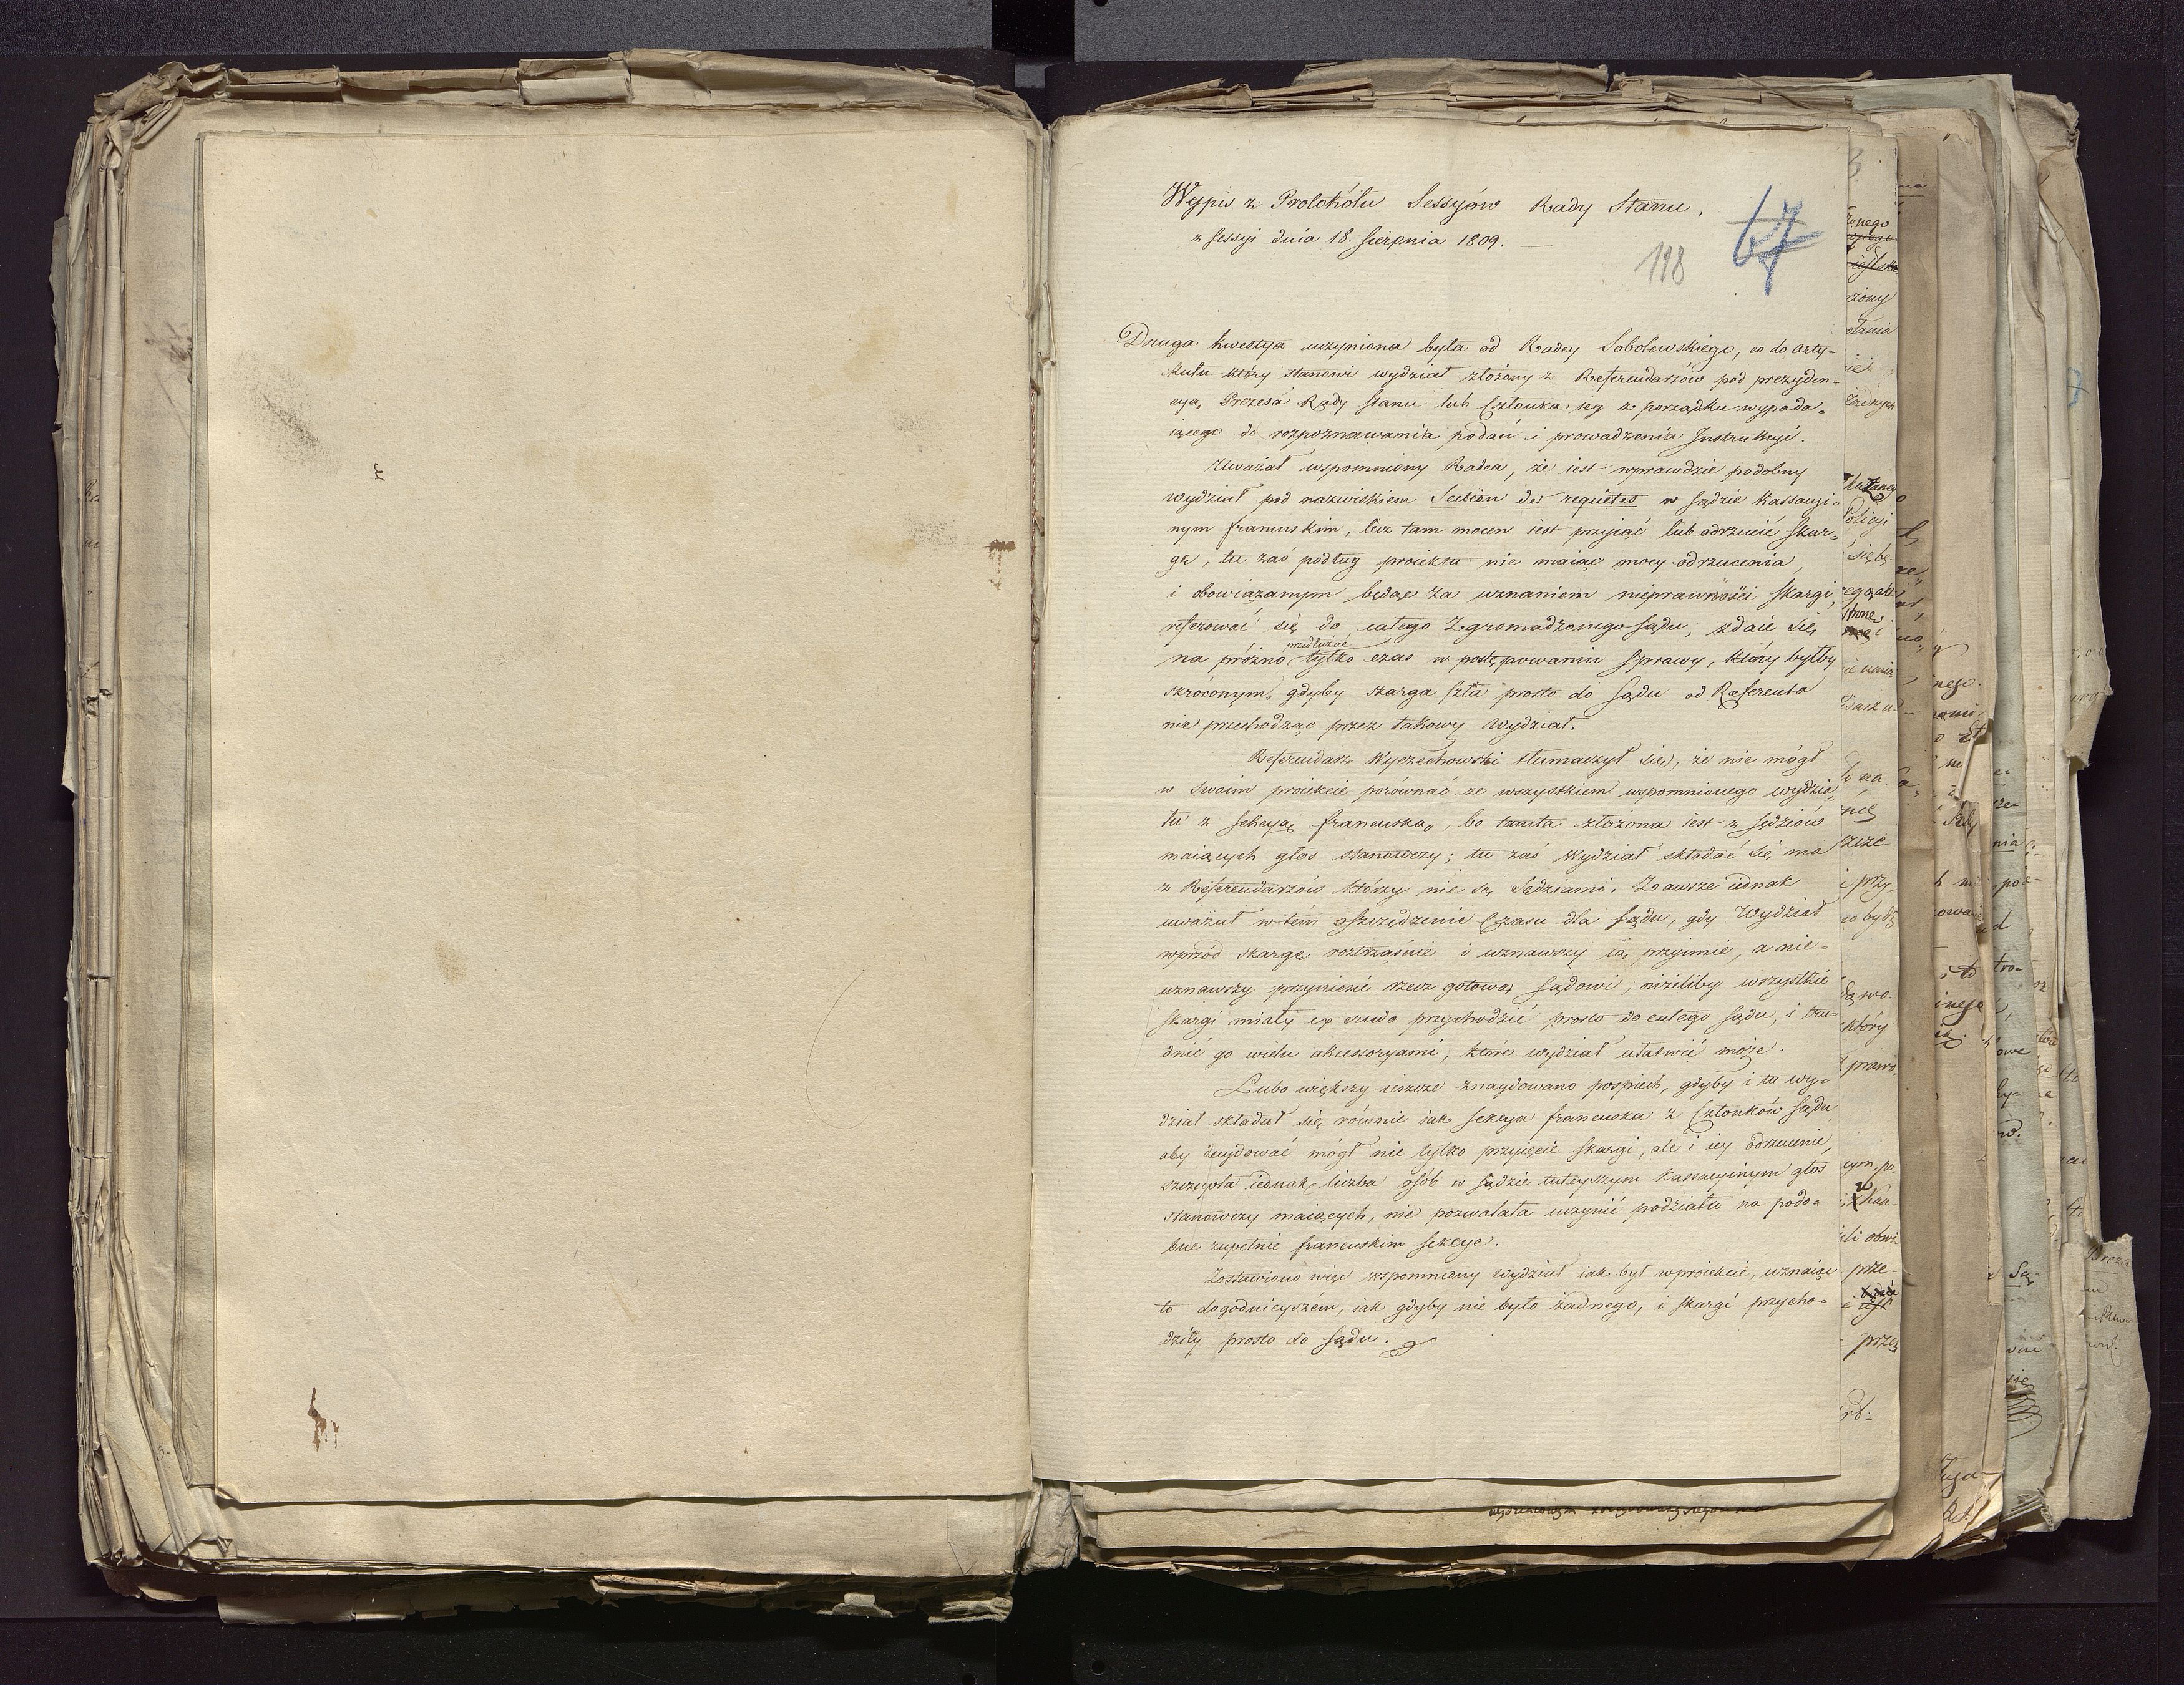 Wypis z Protokółu Sessyów Rady Stanu.
z sessyi dnia 18. Sierpnia 1809.
118
67
Druga kwestya uczyniona była od Radcy Sobolewskiego, co do Arty-
kułu który stanowi wydział złożony z Referendarzów pod prezyden-
cyą Prezesa Rady Stanu lub Członka iey z porządku wypada-
iącego do rozpoznawania podań i prowadzenia Instrukcyi.
Uważał wspomniony Radca, że iest wprawdzie podobny
wydział pod nazwiskiem Section des requêtes w sądzie Kassacyi-
nym francuskim, lecz tam mocen iest przyiąć lub odrzucić skar-
gę, tu zaś podług proiektu nie maiąc mocy odrzucenia,
i obowiązanym będąc za uznaniem nieprawności skargi,
referować się do całego Zgromadzonego sądu, zdaie się
przedłużać
na próżno tylko czas w postępowaniu sprawy, który byłby
skróconym, gdyby skarga szła prosto do sądu od Referenta
nie przechodząc przez takowy Wydział.
Referendarz Wyczechowski tłumaczył się, że nie mógł
w swoim proiekcie porównać ze wszystkiem wspomnionego wydzia-
łu z sekcyą francuską, bo tamta złożona iest z sędziów
maiących głos stanowczy; tu zaś Wydział składać się ma
z Referendarzów którzy nie są Sędziami. Zawsze iednak
uważał w tém oszczędzenie Czasu dla sądu, gdy Wydział
wprzód skargę roztrząśnie i uznawszy ią przyimie, a nie-
uznawszy przyniesie rzecz gotową sądowi, niżeliby wszystkie
skargi miały ex crudo przychodzić prosto do całego sądu, i tru-
dnić go wielu akcessoryami, które wydział ułatwić może.
Lubo większy ieszcze znaydowano pospiech, gdyby i tu wy-
dział składał się równie iak sekcya francuska z Członków sądu
aby decydować mógł nie tylko przyięcie skargi, ale i iey odrzucenie,
szczupła iednak liczba osób w sądzie tuteyszym Kassacyinym głos
stanowczy maiących, nie pozwalała uczynić podziału na podo-
bne zupełnie francuskim sekcye.
Zostawiono więc wspomniony wydział iak był w proiekcie, uznaiąc
to dogodnieyszém, iak gdyby nie było żadnego, i skargi przycho-
dziły prosto do sądu.